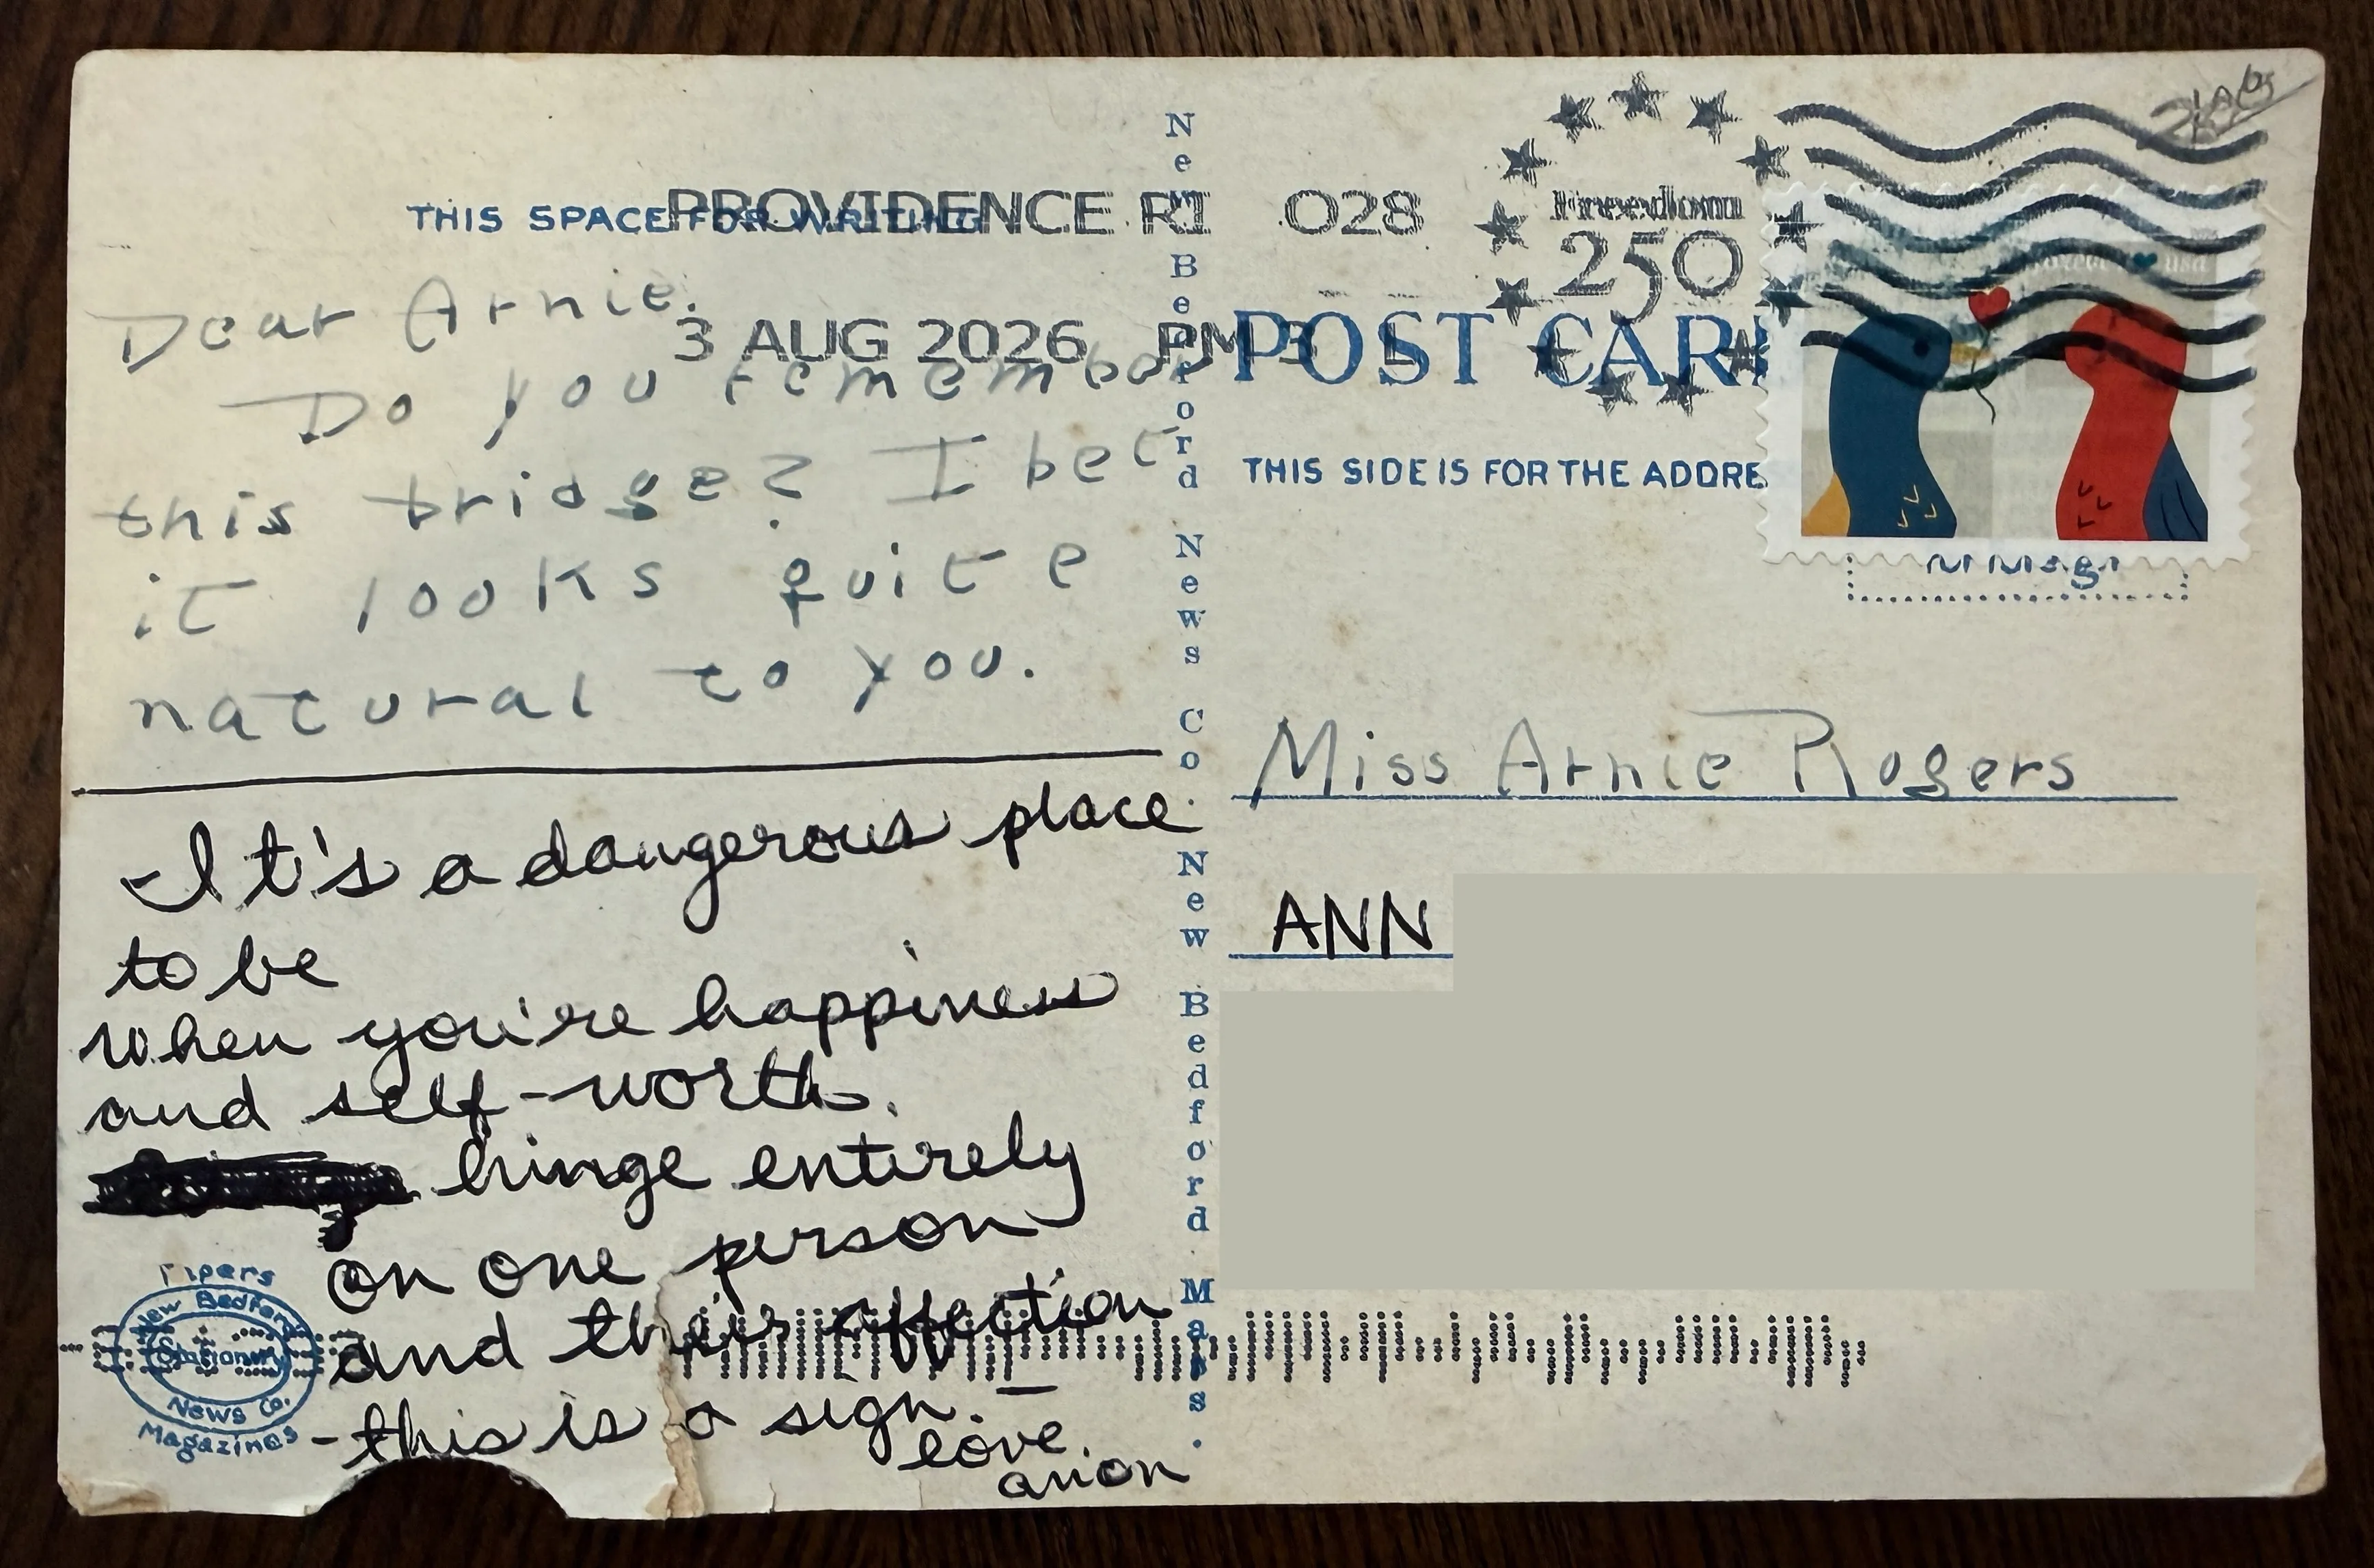 THIS SPACE FOR WRITING
PROVIDENCE RI 028
3 AUG 2026 PM 3 L
Freedom
250
forever usa
POST CAR
THIS SIDE IS FOR THE ADDRE
Dear Arnie.
Do you remember
this bridge? I bet
it looks quite
natural to you.
It's a dangerous place
to be
when you're happiness
and self-worth.
hinge entirely
on one person
and their affection
- this is a sign. -
love,
anon
New Bedford News Co. New Bedford Mass.
Miss Arnie Rogers
ANN
Pipers
New Bedford
Stationery
News Co.
Magazines